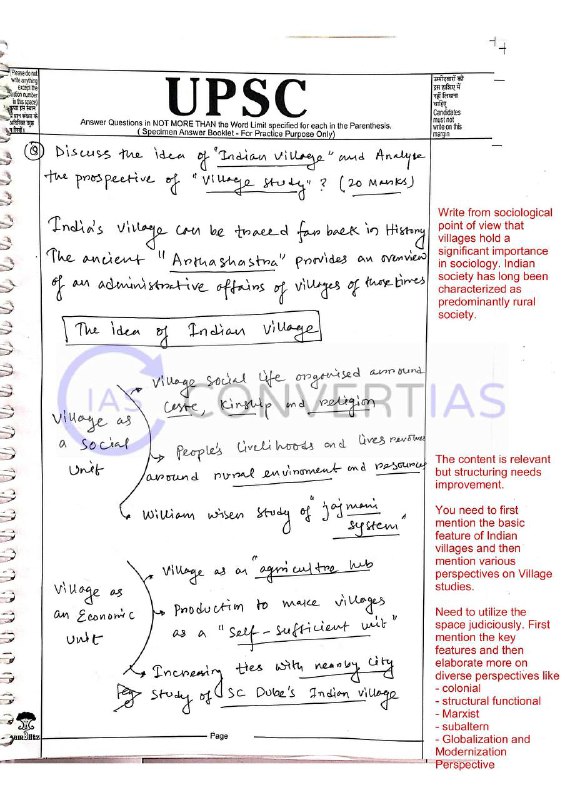 Please do not
write anything
except the
question number
in this space)
UPSC
Answer Questions in NOT MORE THAN the Word Limit specified for each in the Parenthesis.
( Specimen Answer Booklet - For Practice Purpose Only)
उम्मीदवारों को
इस हाशिए में
नहीं लिखना
चाहिए
Candidates
must not
write on this
margin
Q Discuss the idea of "Indian Village" and Analyse
the prospective of "Village Study"? (20 Marks)
India's village can be traced far back in History
The ancient "Arthashastra" provides an overview
of an administrative affairs of villages of those times
The idea of Indian Village
Village as
a social
Unit
village social life organised around
caste, kinship and religion
People's livelihoods and lives revolves
around rural enviroment and resources
William wisen study of "jajmani
system"
Village as
an Economic
Unit
Village as an "agricultre hub
Production to make villages
as a "Self-sufficient unit"
Increasing ties with nearby city
eg study of SC Dube's Indian village
Page
IAS CONVERTIAS
Write from sociological
point of view that
villages hold a
significant importance
in sociology. Indian
society has long been
characterized as
predominantly rural
society.
The content is relevant
but structuring needs
improvement.
You need to first
mention the basic
feature of Indian
villages and then
mention various
perspectives on Village
studies.
Need to utilize the
space judiciously. First
mention the key
features and then
elaborate more on
diverse perspectives like
- colonial
- structural functional
- Marxist
- subaltern
- Globalization and
Modernization
Perspective